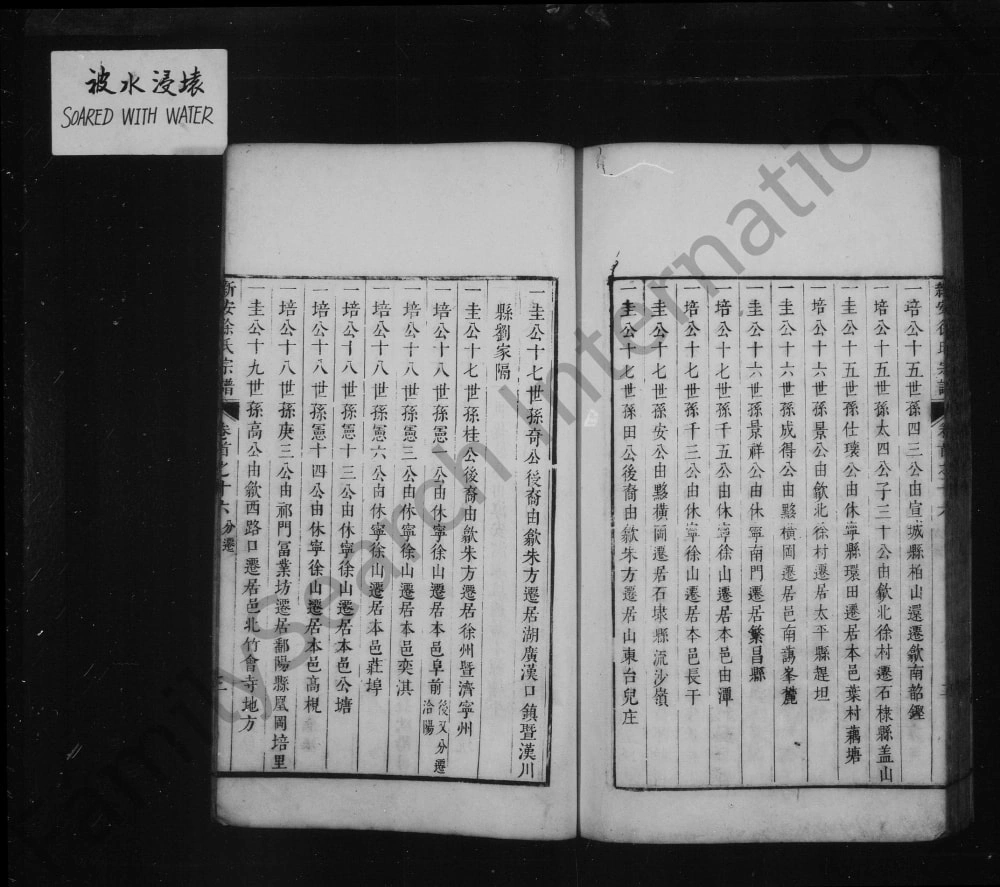 被水浸壊
SOARED WITH WATER
一培公十五世孫四三公由宣城縣柏山還遷歙南韶鏗
一培公十五世孫太四公子三十公由歙北徐村遷石棣縣盖山
一圭公十五世孫仕瓌公由休寧縣環田遷居本邑葉村藕塘
一培公十六世孫景公由歙北徐村遷居太平縣趕坦
一圭公十六世孫成得公由黟橫岡遷居邑南蕩峯麓
一圭公十六世孫景祥公由休寧南門遷居繁昌縣
一培公十七世孫千五公由休寧徐山遷居本邑由潭
一培公十七世孫千三公由休寧徐山遷居本邑長干
一圭公十七世孫安公由黟橫岡遷居石埭縣流沙嶺
一圭公十七世孫田公後裔由歙朱方遷居山東台兒庄
一圭公十七世孫奇公後裔由歙朱方遷居湖廣漢口鎮暨漢川
縣劉家隔
一圭公十七世孫桂公後裔由歙朱方遷居徐州暨濟寧州
一培公十八世孫憲一公由休寧徐山遷居本邑阜前後又分遷洽陽
一培公十八世孫憲三公由休寧徐山遷居本邑奕淇
一培公十八世孫憲六公由休寧徐山遷居本邑莊埠
一培公十八世孫憲十三公由休寧徐山遷居本邑公塘
一培公十八世孫憲十四公由休寧徐山遷居本邑高梘
一培公十八世孫庚三公由祁門冨業坊遷居鄱陽縣凰岡培里
一圭公十九世孫高公由歙西路口遷居邑北竹會寺地方
新安徐氏宗譜 卷首之十六 分遷 三